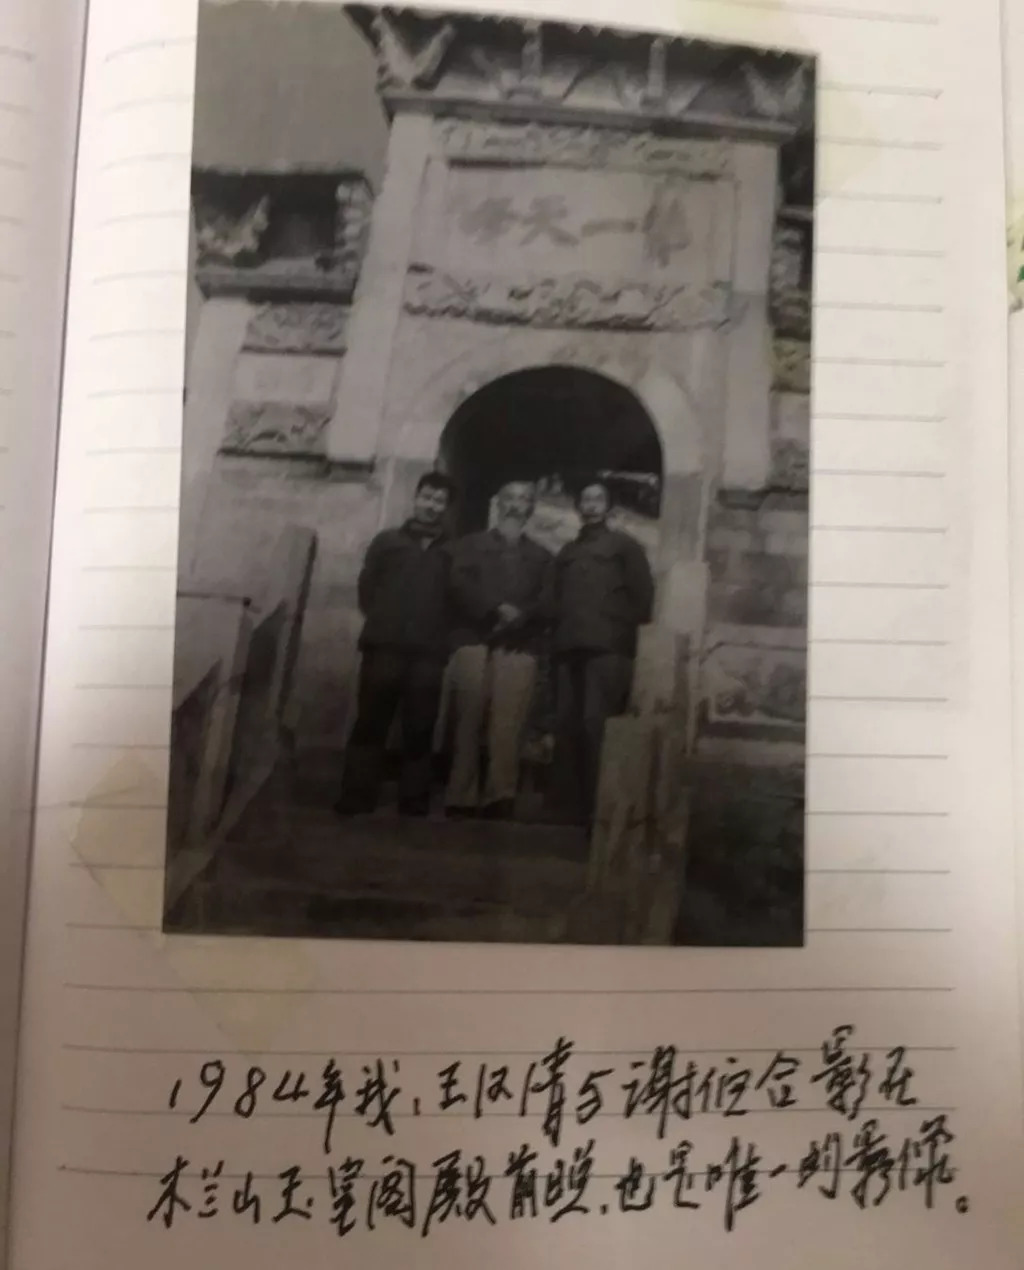 第一天峰
1984年我、王汉清与谢合影在
木兰山玉皇阁殿前照,也是唯一的影像。